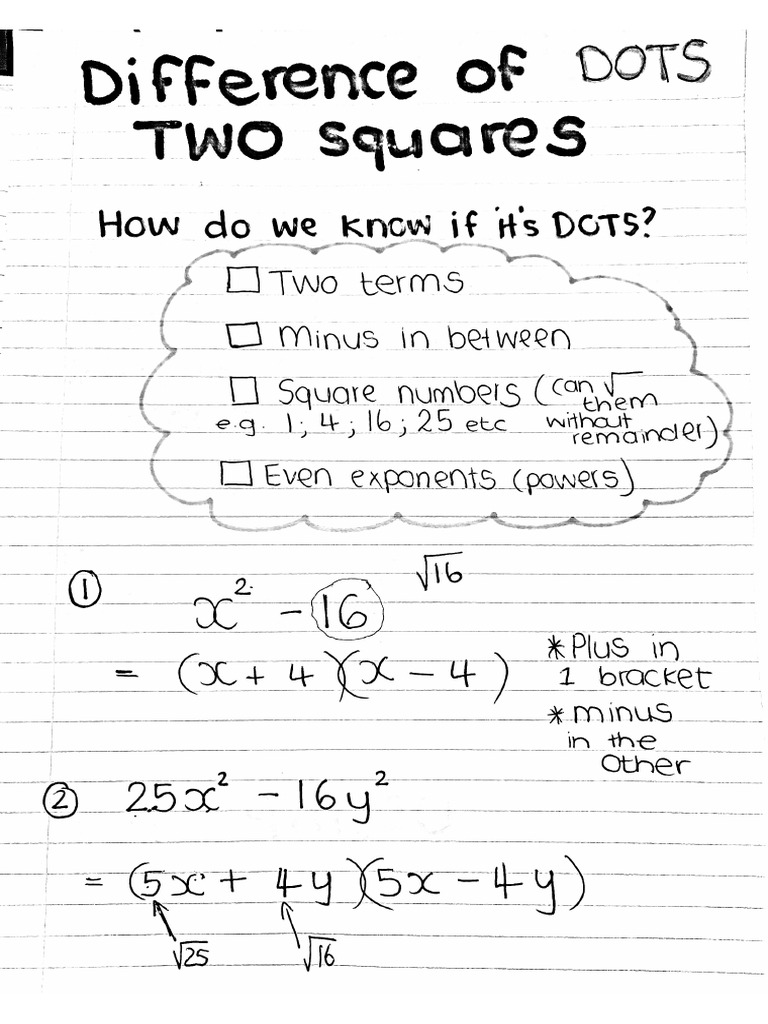 Difference of DOTS
TWO Squares
How do we know if it's DOTS?
□ Two terms
□ Minus in between
□ Square numbers (can √ them without remainder)
e.g. 1; 4; 16; 25 etc
□ Even exponents (powers)
① x² - 16
√16
= (x + 4)(x - 4)
* Plus in
1 bracket
* minus
in the
other
② 25x² - 16y²
= (5x + 4y)(5x - 4y)
√25 √16